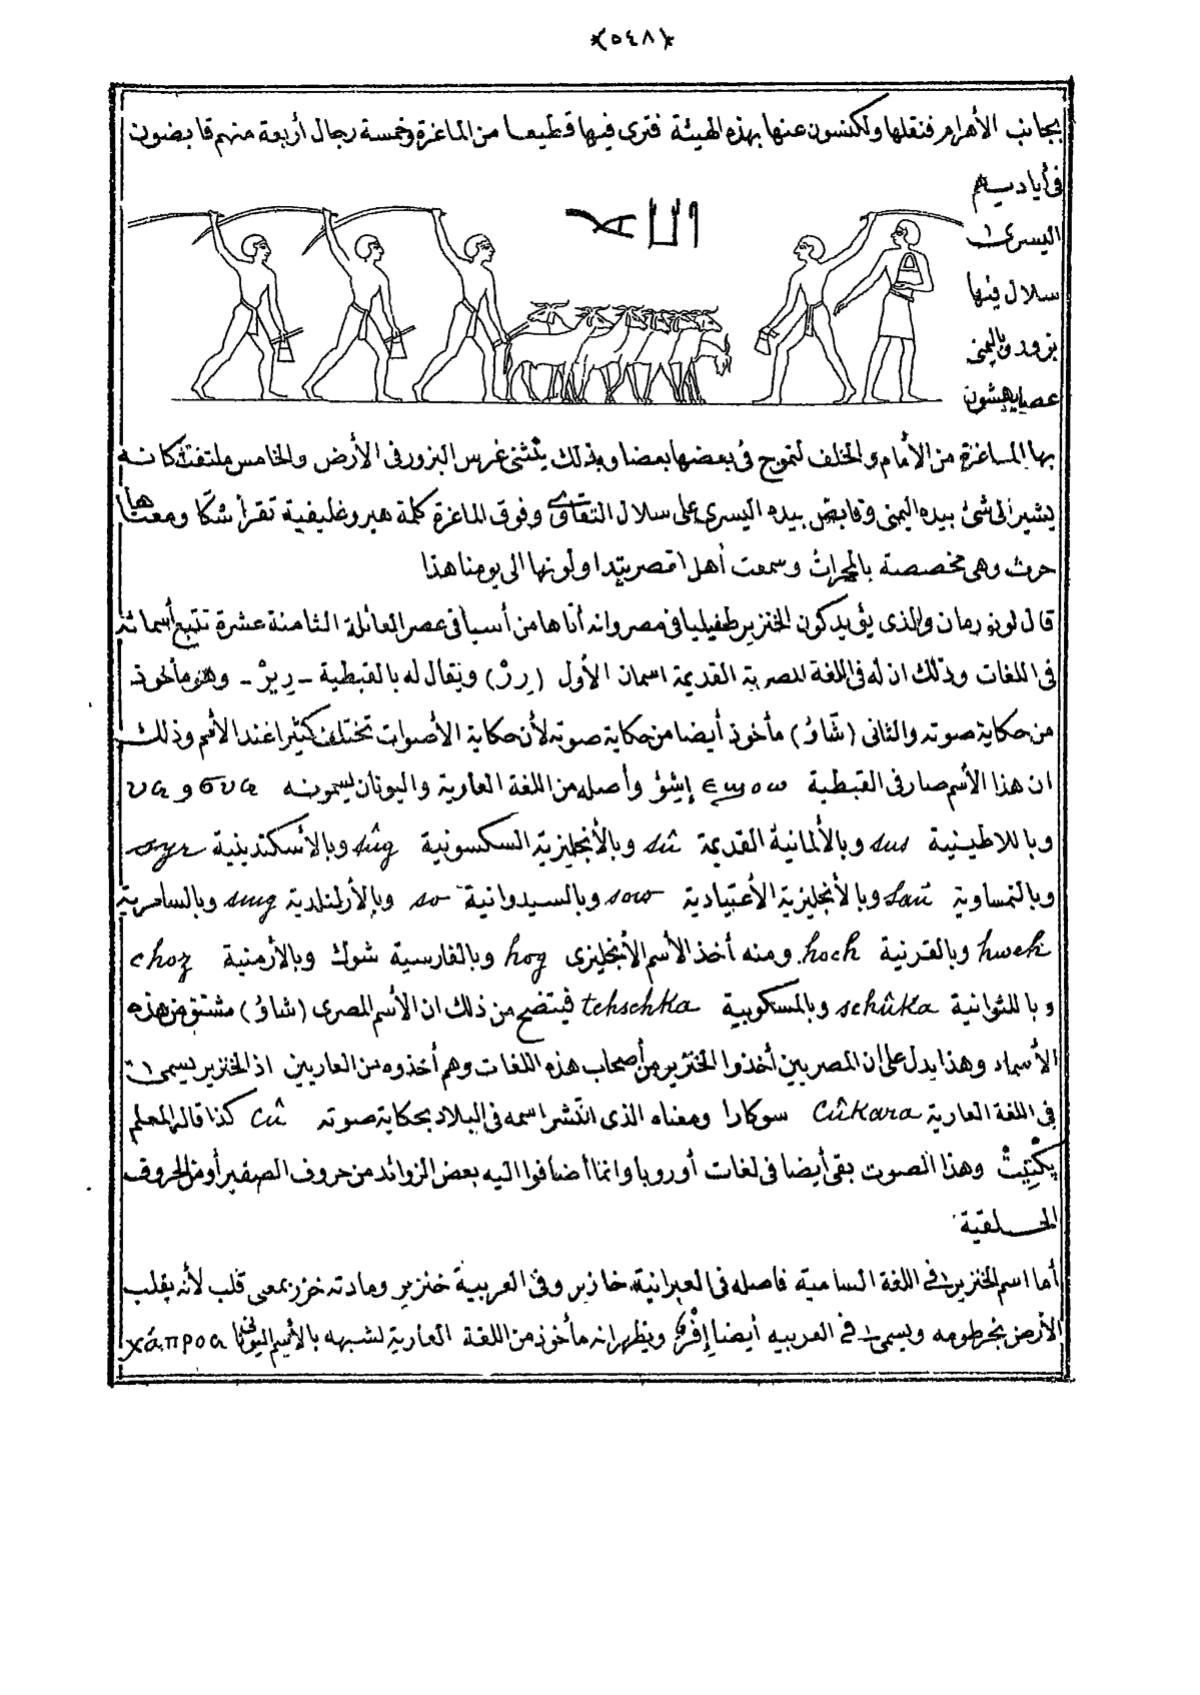 ﴿٥٤٨﴾
بجانب الأهرام فنقلها ولكنسون عنها بهذه الهيئة فترى فيها قطيعا من الماعزة وخمسة رجال أربعة منهم قابضون
فى أياديهم
اليسرى
سلال فيها
بزور وباليمنى
عصا يهشون
بها الماعزة من الأمام والخلف لتموج فى بعضها بعضا وبذلك يتثنى غرس البزور فى الأرض والخامس ملتفت كانه
يشير الى شئ بيده اليمنى وقابض بيده اليسرى على سلال التقاوى وفوق الماعزة كلمة هيروغليفية تقرأ شكا ومعناها
حرث وهى مخصصة بالمحراث وسمعت أهل اقصر يتداولونها الى يومنا هذا
قال لونورمان والذى يؤيد كون الخنزير طفيليا فى مصر وانه أتاها من أسيا فى عصر العائلة الثامنة عشرة تتبع أسمائه
فى اللغات وذلك ان له فى اللغة المصرية القديمة اسمان الأول (رِرْ) ويقال له بالقبطية - رِيرْ - وهو مأخوذ
من حكاية صوته والثانى (شَاوُ) مأخوذ أيضا من حكاية صوته لأن حكاية الأصوات تختلف كثيرا عند الأمم وذلك
ان هذا الأسم صار فى القبطية ⲉϣⲟⲱ إشؤ وأصله من اللغة العارية واليونان يسمونه συα و υα
وباللاطينية sus وبالألمانية القديمة sû وبالأنجليزية السكسونية sûg وبالأسكندينية syr
وبالنمساوية saü وبالأنجليزية الأعتيادية sow وبالسيدوانية so وبالأرلندية suig وبالسامرية
hweh وبالقرنية hoch ومنه أخذ الأسم الأنجليزى hog وبالفارسية شوك وبالأرمنية choz
وباللثوانية schûka وبالمسكوبية tchschka فيتضح من ذلك ان الأسم المصرى (شاوُ) مشتق من هذه
الأسماء وهذا يدل على ان المصريين أخذوا الخنزير من أصحاب هذه اللغات وهم أخذوه من العاريين اذ الخنزير يسمى
فى اللغة العارية Cûkara سوكارا ومعناه الذى انتشر اسمه فى البلاد بحكاية صوته cû كذا قاله المعلم
پِكْتِيتْ وهذا الصوت بقى أيضا فى لغات أوروپا وانما أضافوا اليه بعض الزوائد من حروف الصفير أو من الحروف
الحلقية
أما اسم الخنزير فى اللغة السامية فاصله فى العبرانية خازير وفى العربية خنزير ومادته خزر بمعنى قلب لأنه يقلب
الأرض بخرطومه ويسمى فى العربيه أيضا إفْر ويظهر انه مأخوذ من اللغة العارية لشبهه بالأسم اليونانى χάπροα